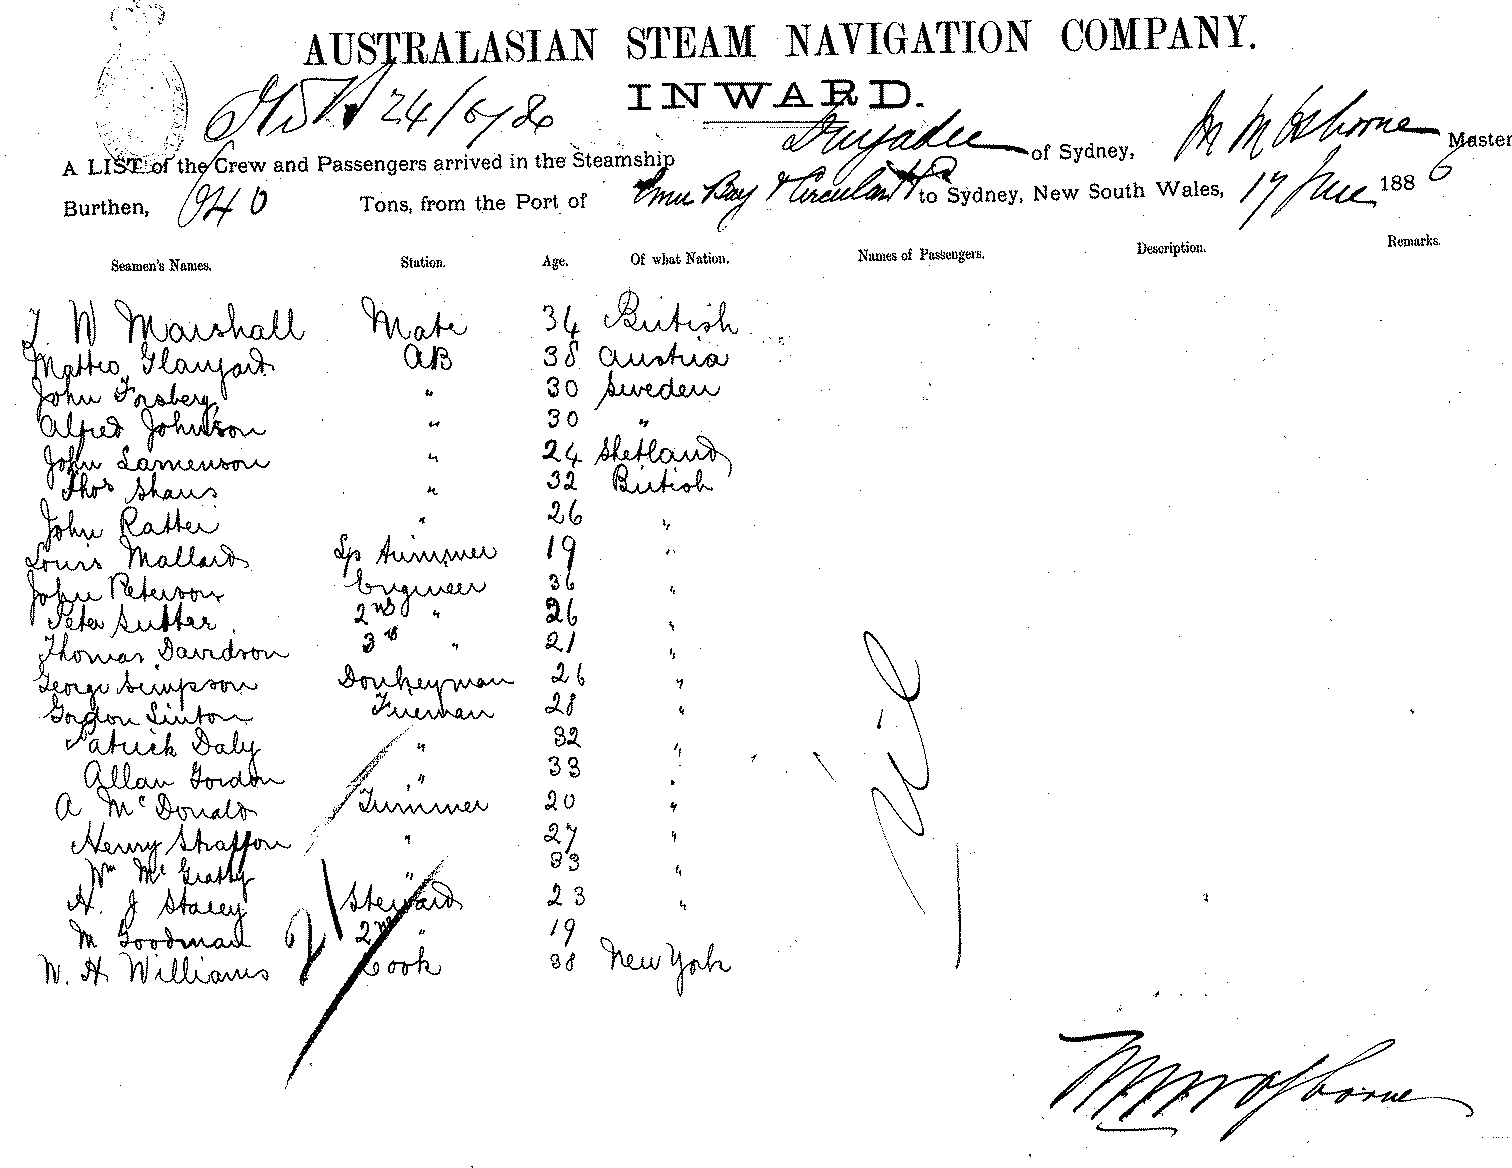 AUSTRALASIAN STEAM NAVIGATION COMPANY.
INWARD.
24/6/86
A LIST of the Crew and Passengers arrived in the Steamship of Sydney, M M Osborne Master
Burthen, 640 Tons, from the Port of Emu Bay & Circular Hd to Sydney, New South Wales, 17 June 1886
Seamen's Names. Station. Age. Of what Nation. Names of Passengers. Description. Remarks.
W Marshall Mate 34 British
Matteo 38 Austria
AB
John Forsberg " 30 Sweden
Alfred Johnson " 30 "
John Lamenson " 24 Shetland
Thos " 32 British
John Ratter " 26 "
Louis Mallard Lp trimmer 19 "
John Peterson Engineer 36 "
Peter Sutter 2nd " 26 "
Thomas Davidson 3rd " 21 "
George Simpson Donkeyman 26 "
Gordon Linton Fireman 28 "
Patrick Daly " 32 "
Allan Gordon " 33 "
A McDonald Trimmer 20 "
Henry Straffon " 27 "
Wm " 33 "
H. J Stacey Steward 23 "
M Goodman 2nd " 19
W. H Williams Cook 38 New York
21
Nil
M M Osborne